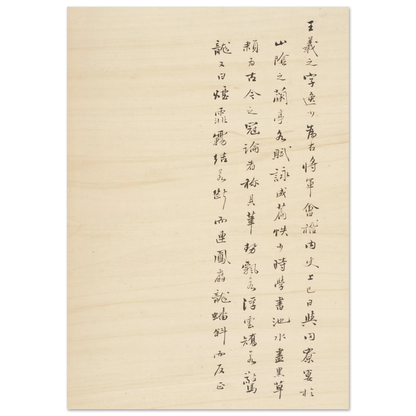 王羲之字逸少為右將軍會稽內史上巳日與同寮宴於
山陰之蘭亭各賦詠成篇帙少時學書池水盡黑草
頪為古今之冠論者称其筆勢飄若浮雲矯若驚
龍又曰煙霏霧結若斷而連鳳翥龍蟠斜而反正